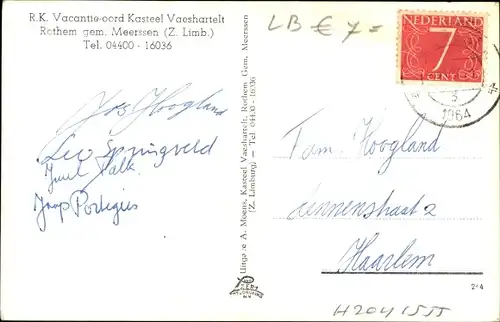 R.K. Vacantie-oord Kasteel Vaeshartelt
Rothem gem. Meerssen (Z. Limb.)
Tel. 04400 - 16036
LB € 7=
NEDERLAND
7
CENT
3
1964
Jos Hoogland
Leo Springveld
Juul Valk
Jaap Portegies
Uitgave A. Moens, Kasteel Vaeshartelt, Rothem Gem. Meerssen
(Z. Limburg) — Tel 04400-16036
Fam. Hoogland
Lennenstraat 2
Haarlem
214
H2041555